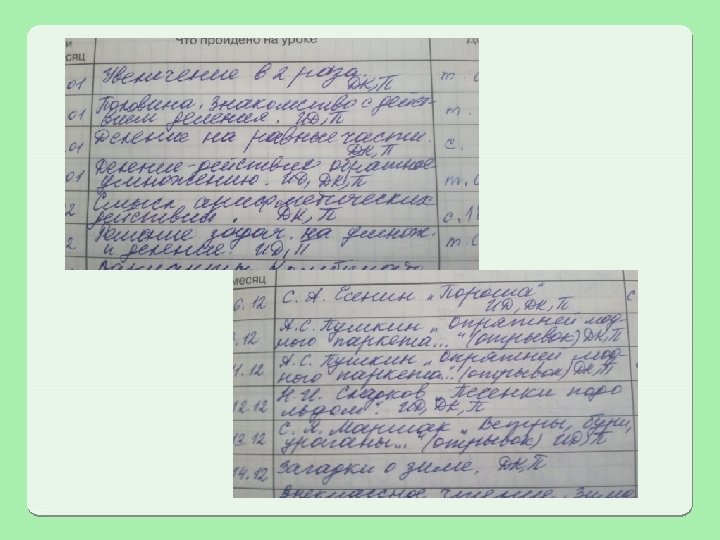 Что пройдено на уроке
сяц
01 Увеличение в 2 раза.
ДК, П
01 Половина. Знакомство с дейст-
вием деления. ИД, П
01 Деление на равные части.
ДК, П
01 Деление - действие обратное
умножению. ИД, ДК, П
Смысл арифметических
действий. ДК, П
Решение задач на умнож.
и деление. ИД, П
месяц
6.12 С. А. Есенин „Пороша"
ИД, ДК, П
.12 А.С. Пушкин „Опрятней мод-
ного паркета..." (отрывок) ДК, П
1.12 А.С. Пушкин „Опрятней мод-
ного паркета..." (отрывок) ДК, П
12.12 Н. И. Сладков „Песенки подо
льдом". ИД, ДК, П
13.12 С. Я. Маршак „Ветры, бури,
ураганы..." (отрывок) ИД, П
14.12 Загадки о зиме. ДК, П
Внеклассное чтение.